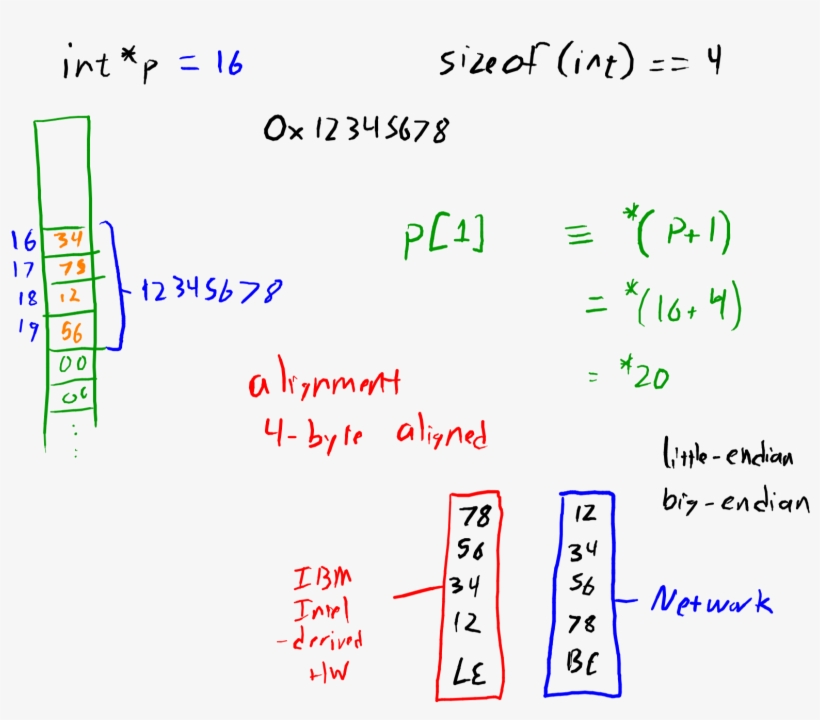 int *p = 16
sizeof(int) == 4
0x12345678
p[1] ≡ *(P+1)
= *(16+4)
= *20
16 34
17 78
18 12
19 56
12345678
00
00
⋮
alignment
4-byte aligned
little-endian
big-endian
78
56
34
12
LE
IBM
Intel
-derived
HW
12
34
56
78
BE
Network